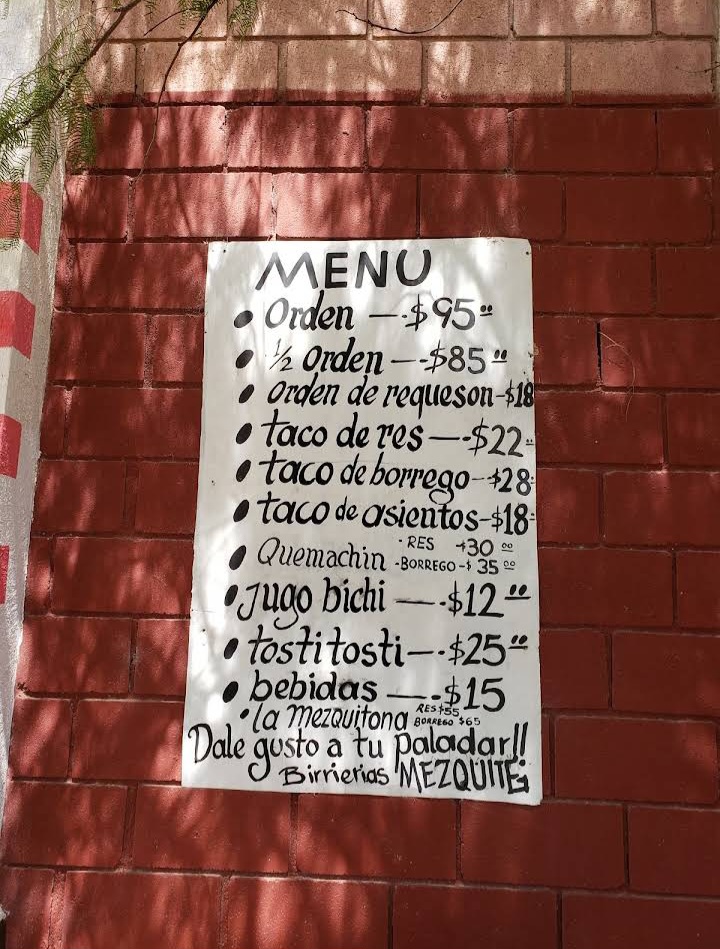 MENU
• Orden —-$95.00
• ½ Orden —-$85.00
• orden de requeson-$18
• taco de res —-$22..
• taco de borrego-$28:
• taco de asientos-$18:
• Quemachin -RES $30 00
-BORREGO-$ 35 00
• Jugo bichi —-$12.00
• tostitosti—-$25.00
• bebidas —-$15
• la Mezquitona RES $55
BORREGO $65
Dale gusto a tu paladar!!
Birrierias MEZQUITE